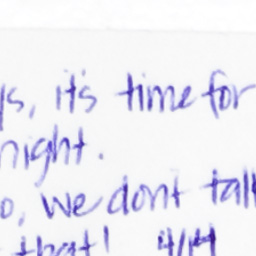 ys, it's time for
night.
o, we dont talk
that! 4/14